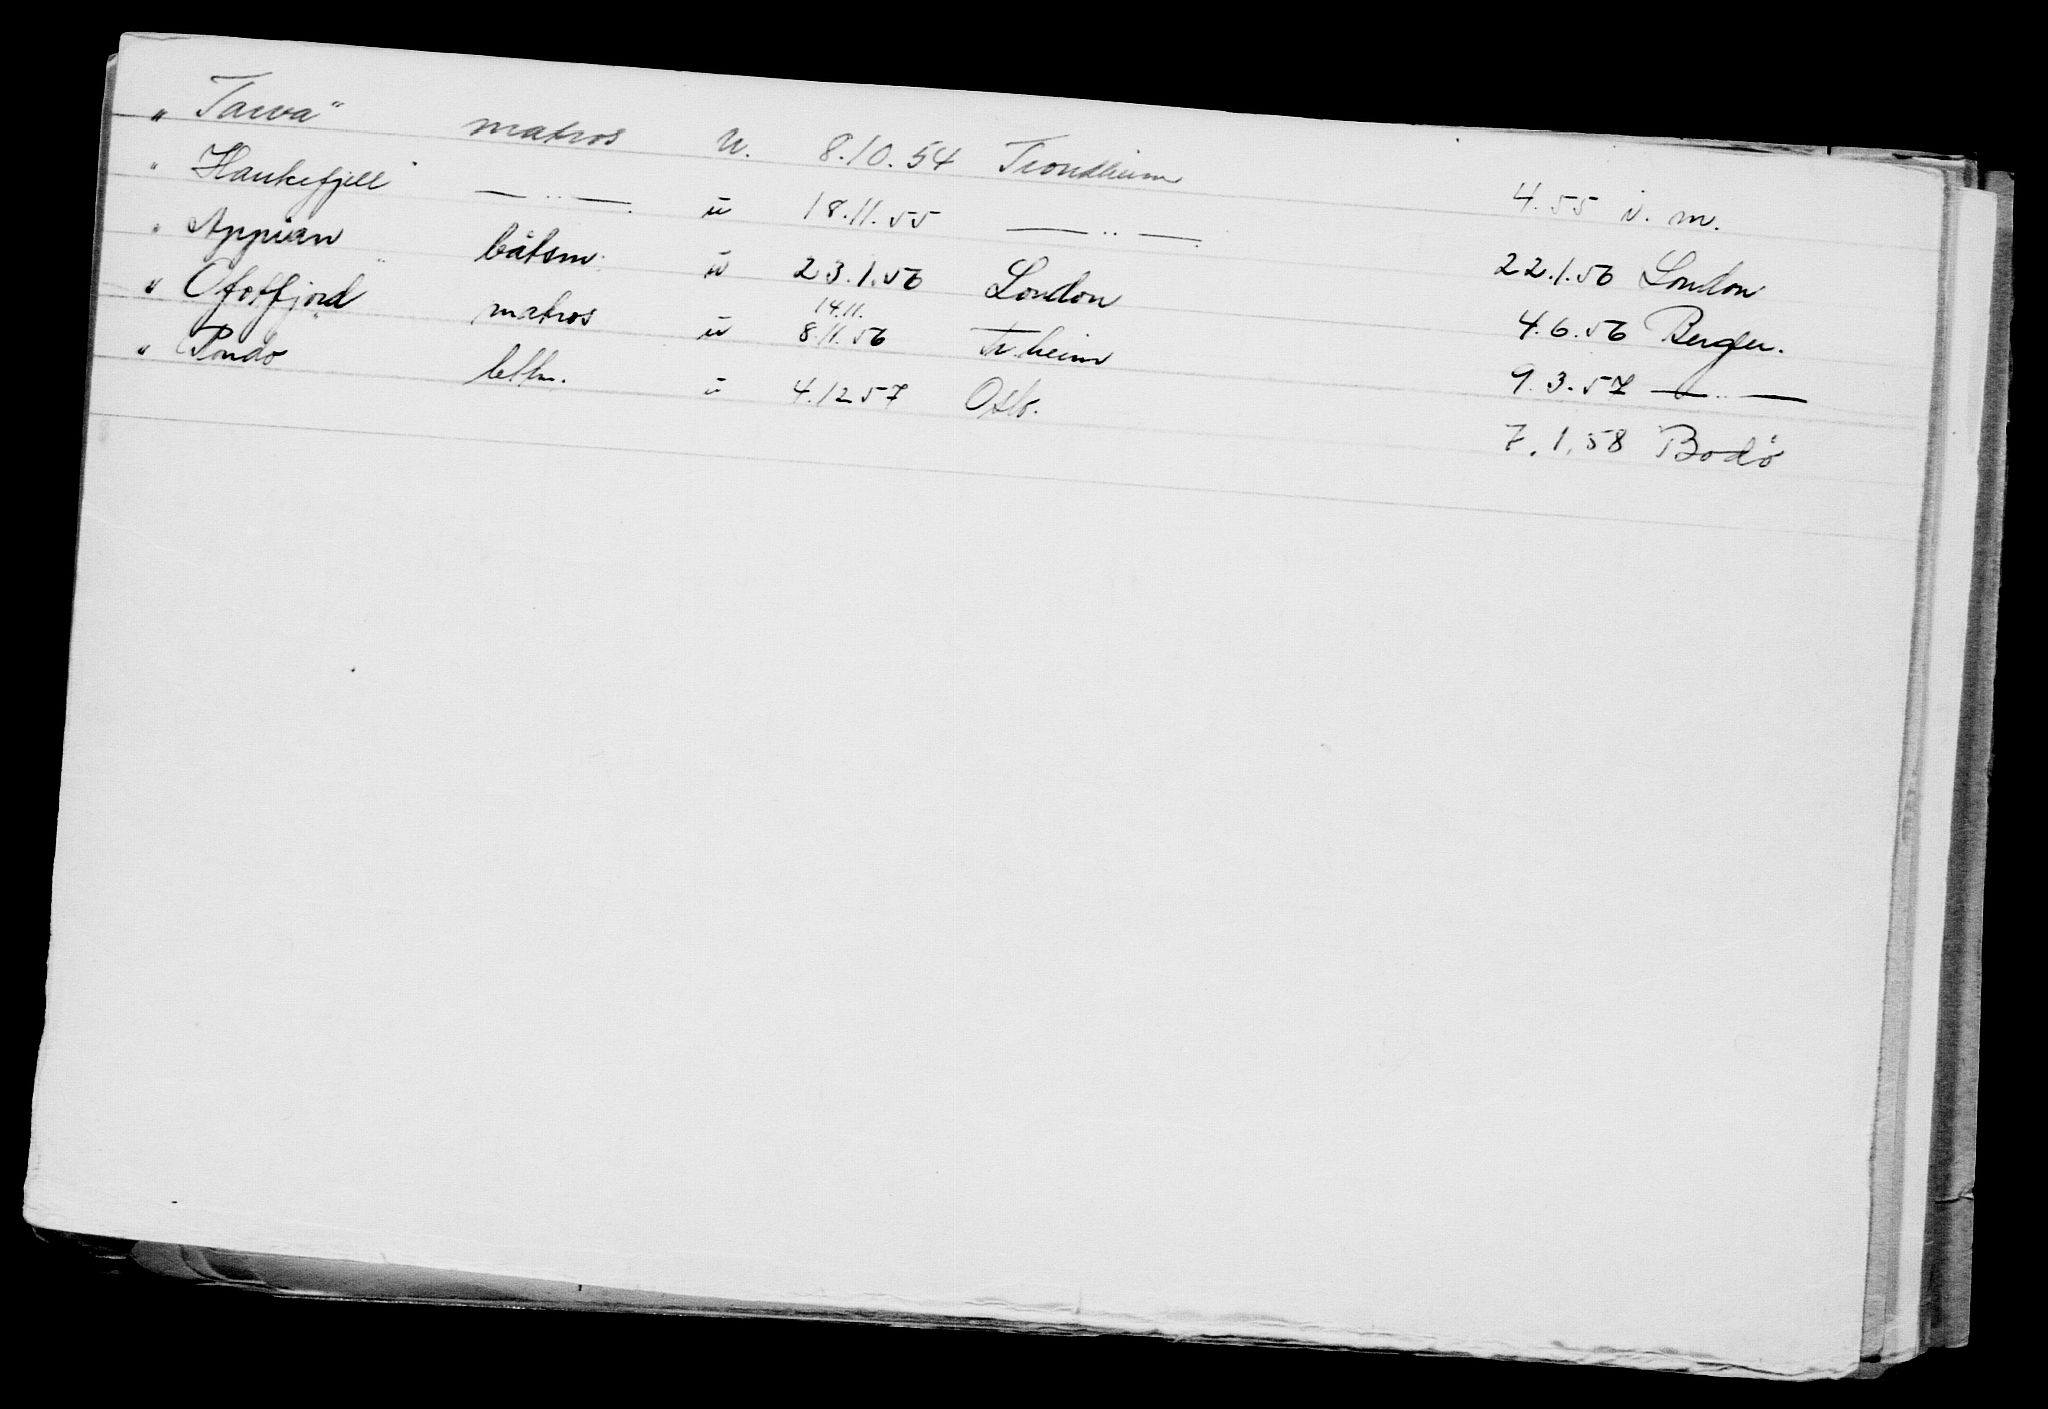 " Tarva" matros u. 8.10.54 Trondheim 4.55 i. m.
" Haukefjell — " — u 18.11.55 — " — 22.1.56 London
" Appian " båtsm. u 23.1.56 London 4.6.56 Bergen.
14.11.
" Ofotfjord " matros u 8.11.56 Tr.heim 9.3.57 — " —
" Pondo u 4.12 57 Oslo. 7.1.58 Bodø